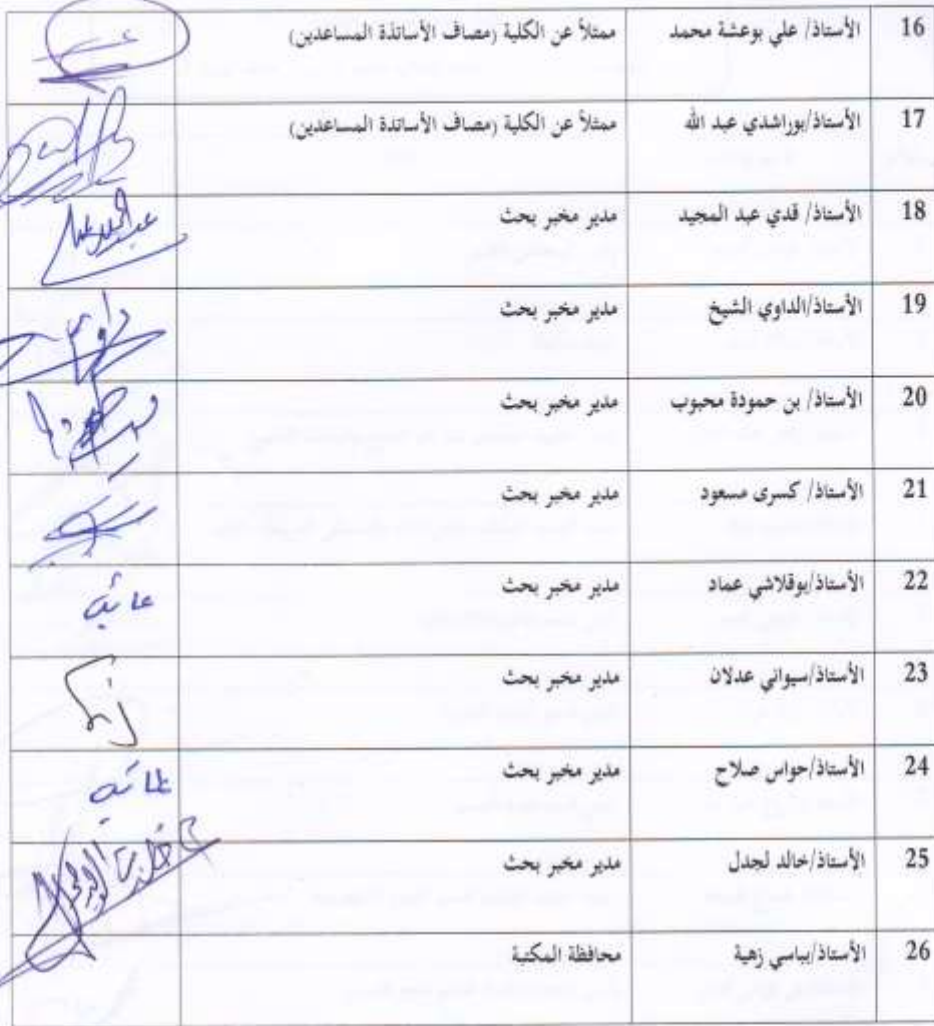 16 الأستاذ/ علي بوعشة محمد ممثلاً عن الكلية (مصاف الأساتذة المساعدين)
17 الأستاذ/بوراشدي عبد الله ممثلاً عن الكلية (مصاف الأساتذة المساعدين)
18 الأستاذ/ قدي عبد المجيد مدير مخبر بحث
19 الأستاذ/الداوي الشيخ مدير مخبر بحث
20 الأستاذ/ بن حمودة محبوب مدير مخبر بحث
21 الأستاذ/ كسرى مسعود مدير مخبر بحث
22 الأستاذ/بوقلاشي عماد مدير مخبر بحث
23 الأستاذ/سيواني عدلان مدير مخبر بحث
24 الأستاذ/حواس صلاح مدير مخبر بحث
25 الأستاذ/خالد لجدل مدير مخبر بحث
26 الأستاذ/بباسي زهية محافظة المكتبة